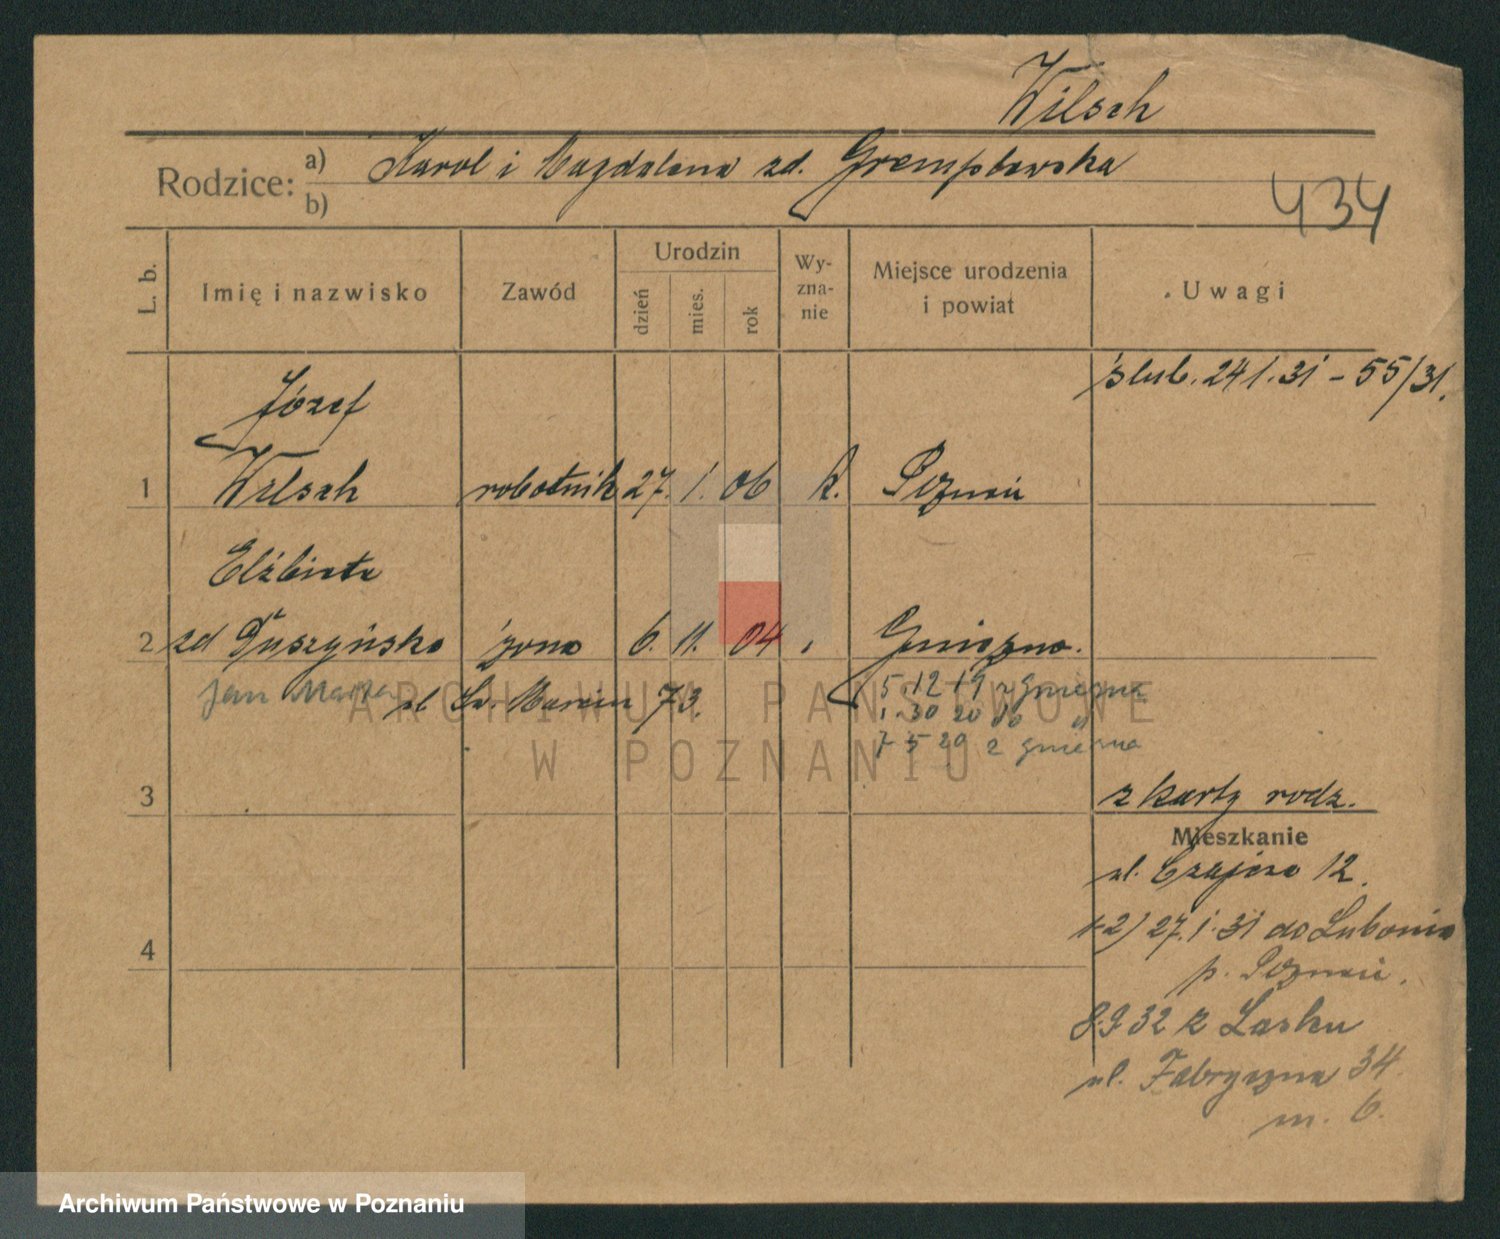 Wilsch
Rodzice: a) Karol i Magdalena zd.
b)
434
L. b.
Imię i nazwisko
Zawód
Urodzin
dzień
mies.
rok
Wy-
zna-
nie
Miejsce urodzenia
i powiat
Uwagi
ślub. 24 1. 31 - 55/31.
Józef
1 Wilsch robotnik 27. 1. 06 k. Poznań
Elżbieta
2 zd Tuszyńska żona 6. 11. 04 Gniezno.
Jan
ul Św. Marcin 73.
5 12 19 z Gniezna
1. 30 20 do "
7 5 20 z Gniezna
ARCHIWUM PAŃSTWOWE
W POZNANIU
3
z karty rodz.
Mieszkanie
ul. Czajcza 12.
1-2) 27. 1. 31 do Lubonia
p. Poznań.
4
8.9 32 z Lasku
ul. Fabryczna 34.
m. 6.
Archiwum Państwowe w Poznaniu